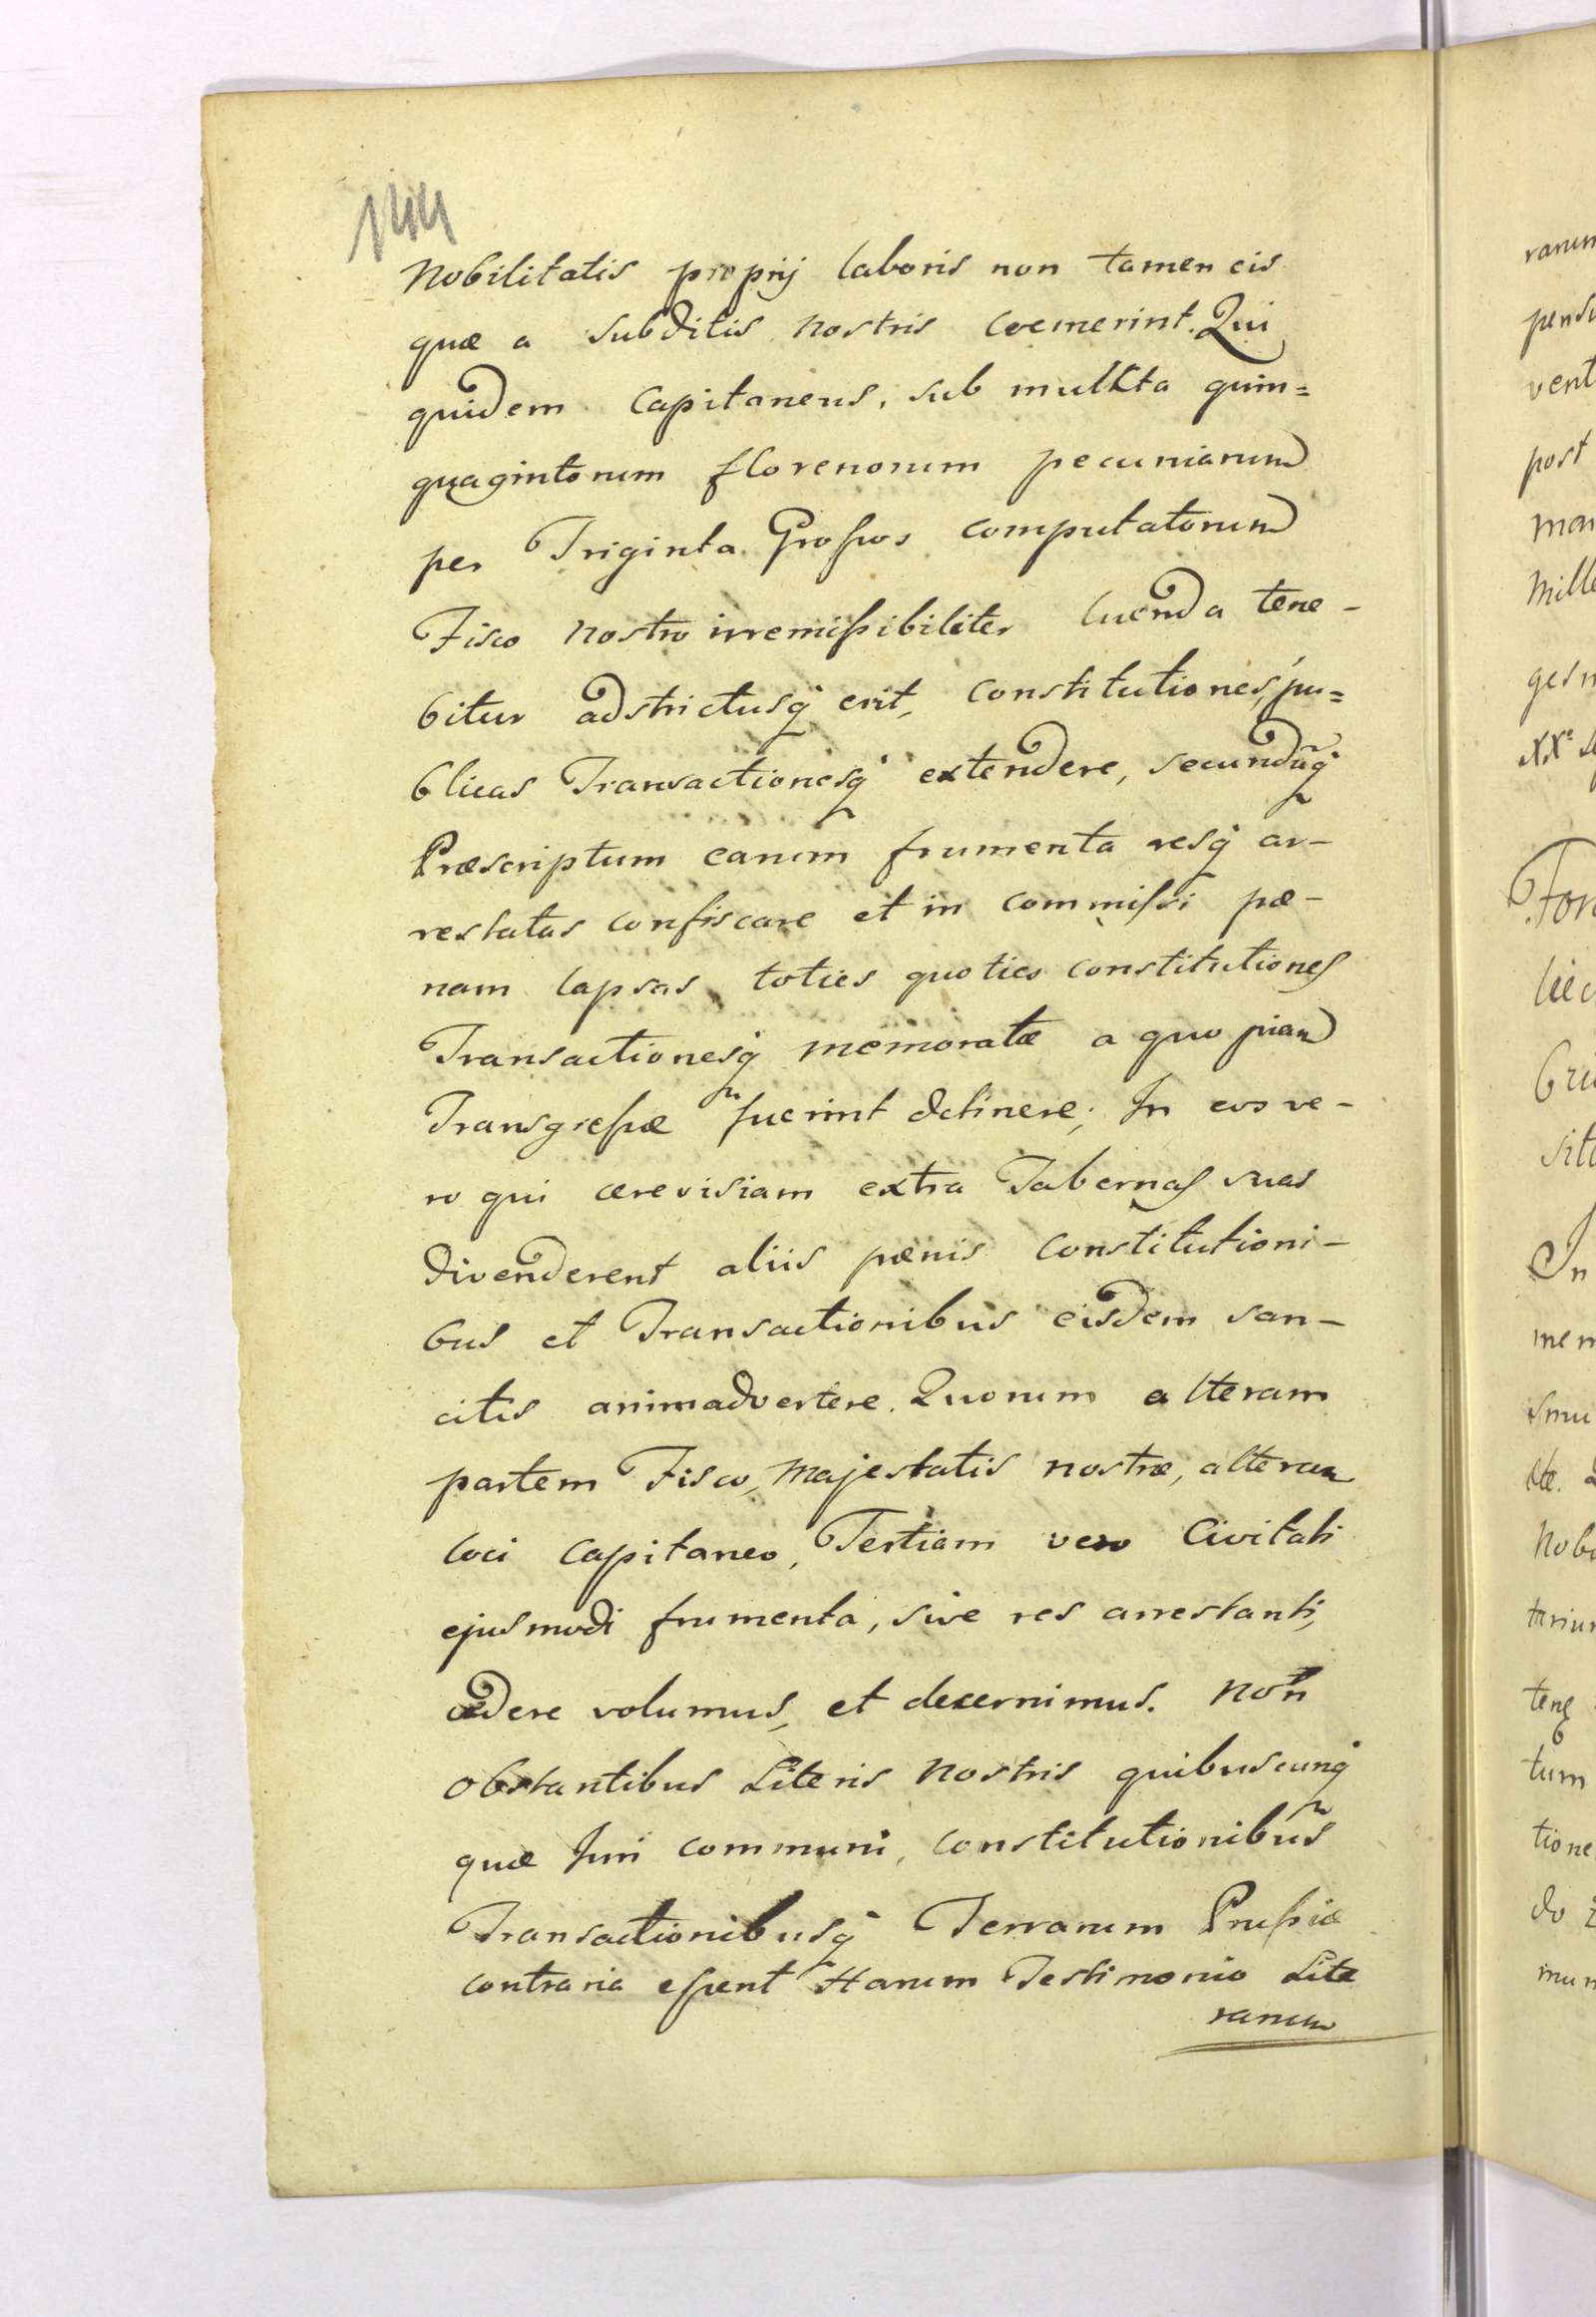 144
Nobilitatis proprij laboris non tamen eis
quæ a subditis nostris coemerint. Qui
quidem Capitaneus, sub mulkta quin=
quagintorum florenorum pecuniarum
per Triginta Grossos computatorum
Fisco nostro irremissibiliter luenda tene-
bitur adstrictusq erit, constitutiones, pu=
blicas Transactionesq extendere, secundūq
Præscriptum earum frumenta resq ar-
restatas confiscare et in commissi pæ-
nam lapsas, toties quoties constitutiones
Transactionesq memoratæ a quopiam
Transgressæ fuerint detinere; In eos ve-
ro qui cerevisiam extra Tabernas suas
divenderent aliis pænis Constitutioni-
bus et Transactionibus eisdem san-
citis animadvertere. Quorum alteram
partem Fisco, Majestatis nostræ, alteram
loci Capitaneo, Tertiam vero Civitati
ejusmodi frumenta, sive res arrestanti,
cedere volumus, et decernimus. Non
obstantibus Literis Nostris quibuscunq
quæ Juri communi, constitutionibus
Transactionibusq Terrarum Prussiæ
contraria essent Harum Testimonio Lite
rarum
ranum
pens
vent
post
Mille
gesn
Tor
In
mem
Nob
tum
tione
do
mun